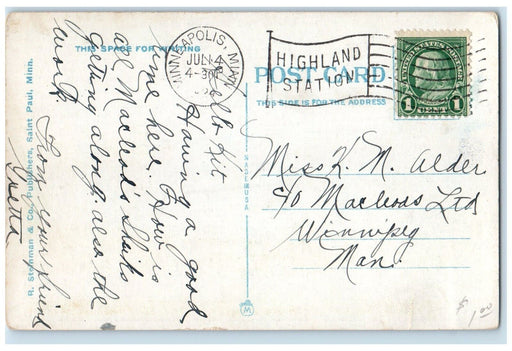 THIS SPACE FOR WRITING
MINNEAPOLIS, MINN.
JUN 4
4-30P
HIGHLAND
STATION
POST CARD
THIS SIDE IS FOR THE ADDRESS
UNITED STATES POSTAGE
1 CENT 1
Hello Kit
Having a good
time here. How is
all Macleod's Skirts
getting along. also the
work.
from your friend
MADE IN U.S.A.
R. Steinman & Co., Publishers, Saint Paul, Minn.
Miss K. M. Alder
c/o Macleods Ltd
Winnipeg
Man.
$1.00